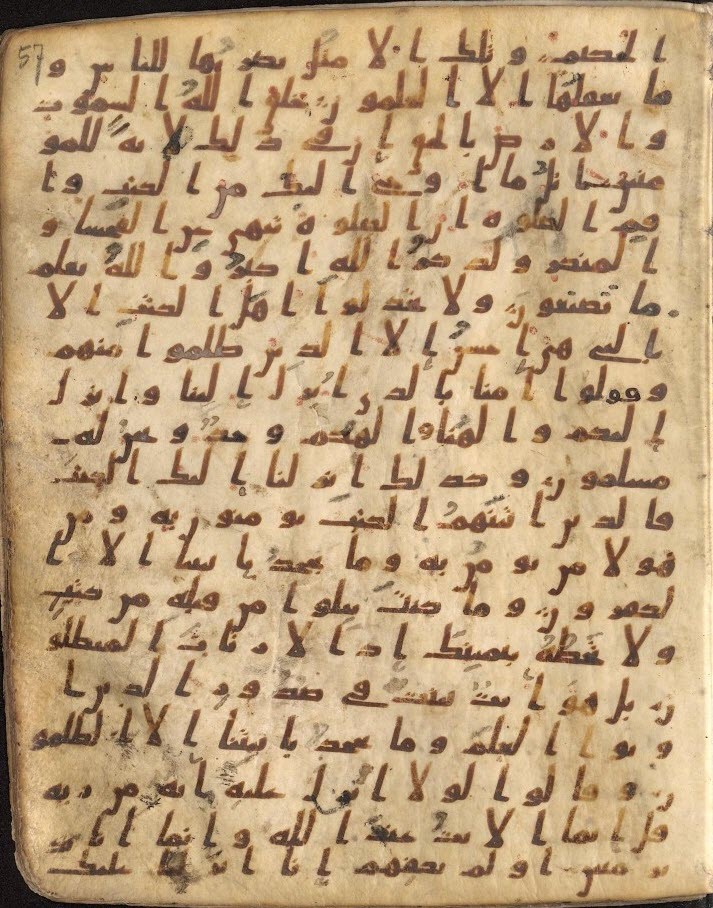 57
الحكيم وتلك الامثل نضربها للناس و
ما يعقلها الا العلمون خلق الله السموت
والارض بالحق ان في ذلك لايه للمو
منين اتل ما اوحي اليك من الكتب وا
قم الصلوه ان الصلوه تنهى عن الفحشا و
المنكر ولذكر الله اكبر والله يعلم
ما تصنعون ولا تجدلوا اهل الكتب الا
بالتي هي احسن الا الذين ظلموا منهم
وقولوا امنا بالذي انزل الينا وانزل
اليكم والهنا والهكم وحد ونحن له
مسلمون وكذلك انزلنا اليك الكتب
فالذين اتينهم الكتب يومنون به ومن
هولا من يومن به وما يجحد بايتنا الا ا
لكفرون وما كنت تتلوا من قبله من كتب
ولا تخطه بيمينك اذا لارتاب المبطلو
ن بل هو ايت بينت في صدور الذين ا
وتوا العلم وما يجحد بايتنا الا الظلمو
ن وقالوا لولا انزل عليه ايه من ربه
قل انما الايت عند الله وانما انا نذ
ير مبين اولم يكفهم انا انزلنا عليك